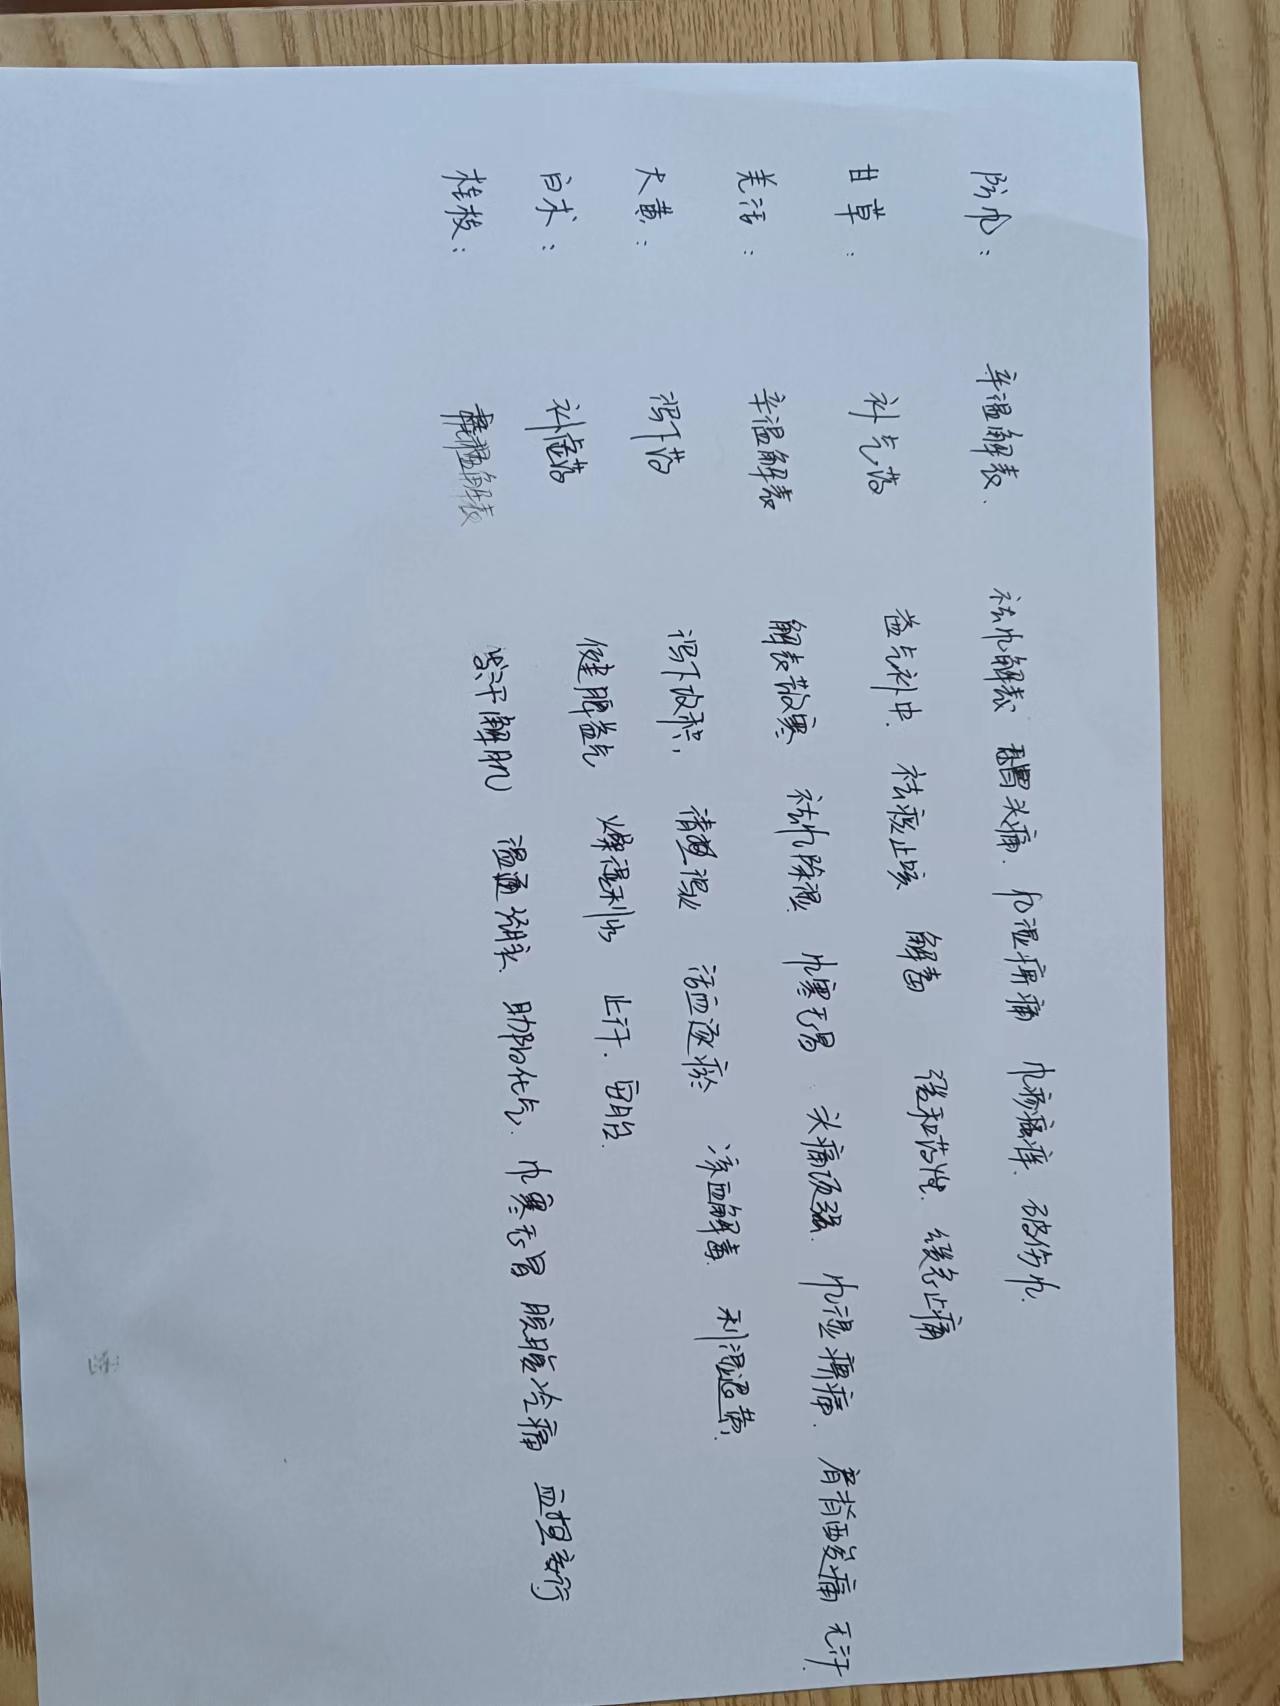 防风: 辛温解表. 祛风解表 感冒头痛. 风湿痹痛 风疹瘙痒. 破伤风.
甘草: 补气药 益气补中. 祛痰止咳 解毒 缓和药性. 缓急止痛
羌活: 辛温解表 解表散寒 祛风除湿. 风寒感冒. 头痛项强. 风湿痹痛. 肩背酸痛 无汗.
大黄: 泻下药 泻下攻积, 清热泻火 活血逐瘀 凉血解毒. 利湿退黄.
白术: 补虚药 健脾益气 燥湿利水 止汗. 安胎.
桂枝: 辛温解表 发汗解肌 温通经脉、助阳化气. 风寒感冒 脘腹冷痛